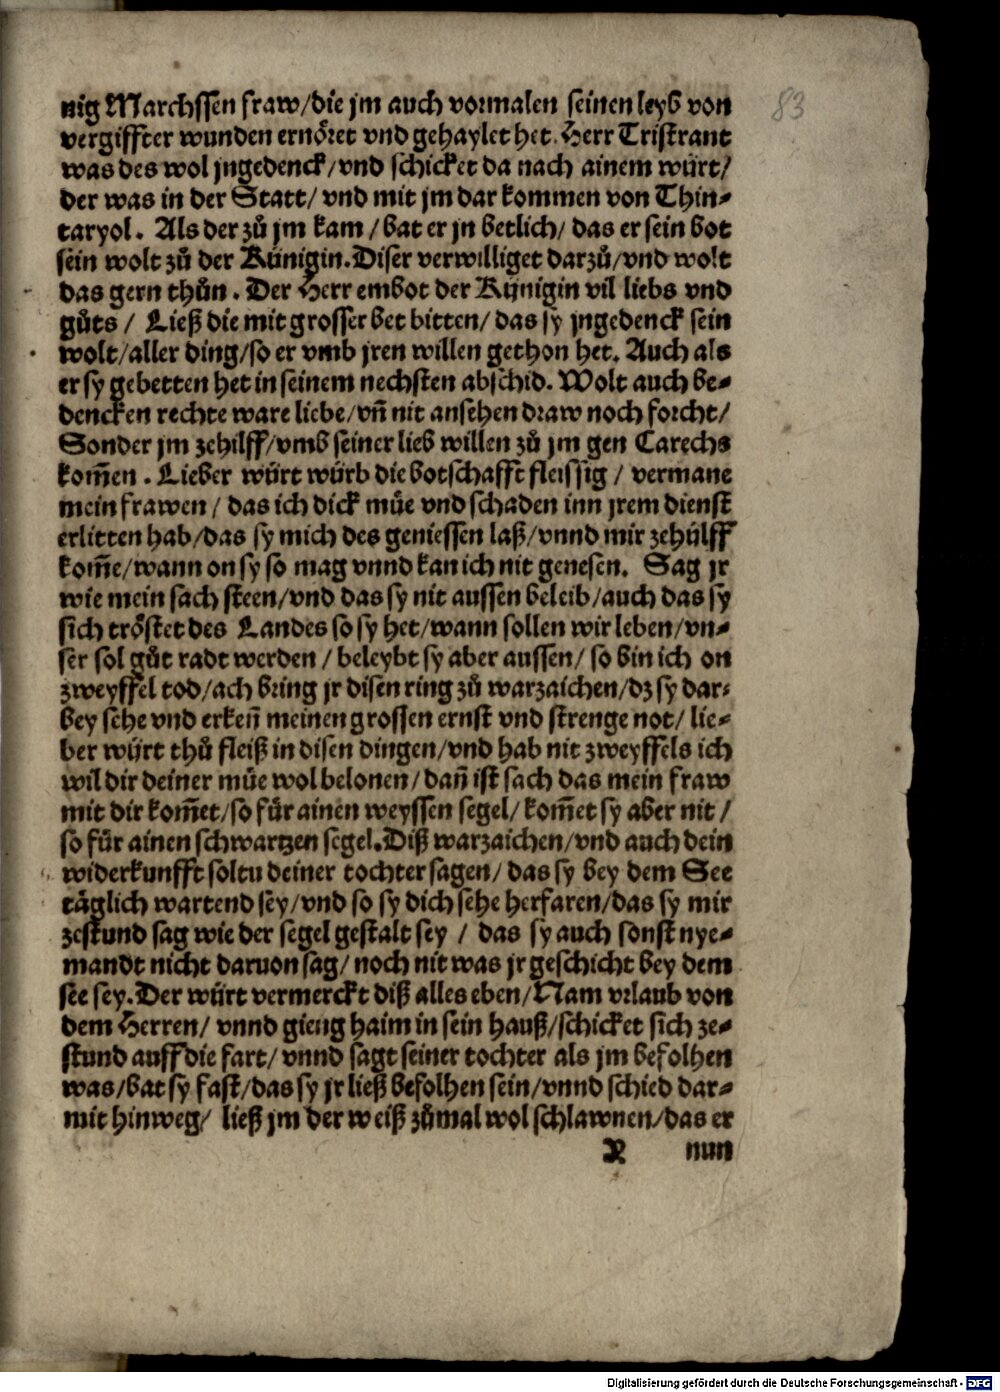 83
nig Marchssen fraw/die jm auch vormalen seinen leyb von
vergiffter wunden ernöret vnd gehaylet het. Herr Tristrant
was des wol jngedenck/vnd schicket da nach ainem würt/
der was in der Statt/ vnd mit jm dar kommen von Thin⸗
taryol. Als der zů jm kam/bat er jn betlich/ das er sein bot
sein wolt zů der Künigin. Diser verwilliget darzů/vnd wolt
das gern thůn. Der Herr embot der Künigin vil liebs vnd
gůts/ Ließ die mit grosser bet bitten/ das sy jngedenck sein
wolt/aller ding/so er vmb jren willen gethon het. Auch als
er sy gebetten het in seinem nechsten abschid. Wolt auch be⸗
dencken rechte ware liebe/vñ nit ansehen draw noch forcht/
Sonder jm zehilff/vmb seiner lieb willen zů jm gen Carechs
kom̃en. Lieber würt würb die botschafft fleissig/ vermane
mein frawen/ das ich dick müe vnd schaden inn jrem dienst
erlitten hab/das sy mich des geniessen laß/vnnd mir zehülff
kom̃e/wann on sy so mag vnnd kan ich nit genesen. Sag jr
wie mein sach steen/vnd das sy nit aussen beleib/auch das sy
sich tröstet des Landes so sy het/wann sollen wir leben/vn⸗
ser sol gůt radt werden/ beleybt sy aber aussen/ so bin ich on
zweyffel tod/ach bring jr disen ring zů warzaichen/dz sy dar⸗
bey sehe vnd erkeñ meinen grossen ernst vnd strenge not/ lie⸗
ber würt thů fleiß in disen dingen/vnd hab nit zweyffels ich
wil dir deiner müe wol belonen/dañ ist sach das mein fraw
mit dir kom̃et/so für ainen weyssen segel/ kom̃et sy aber nit/
so für ainen schwartzen segel. Diß warzaichen/vnd auch dein
widerkunfft soltu deiner tochter sagen/ das sy bey dem See
täglich wartend sey/vnd so sy dich sehe herfaren/das sy mir
zestund sag wie der segel gestalt sey/ das sy auch sonst nye⸗
mandt nicht daruon sag/ noch nit was jr geschicht bey dem
see sey. Der würt vermerckt diß alles eben/ Nam vrlaub von
dem Herren/ vnnd gieng haim in sein hauß/schicket sich ze⸗
stund auff die fart/ vnnd sagt seiner tochter als jm befolhen
was/bat sy fast/das sy jr ließ befolhen sein/vnnd schied dar⸗
mit hinweg/ ließ jm der weiß zůmal wol schlawnen/das er
X nun
Digitalisierung gefördert durch die Deutsche Forschungsgemeinschaft - DFG